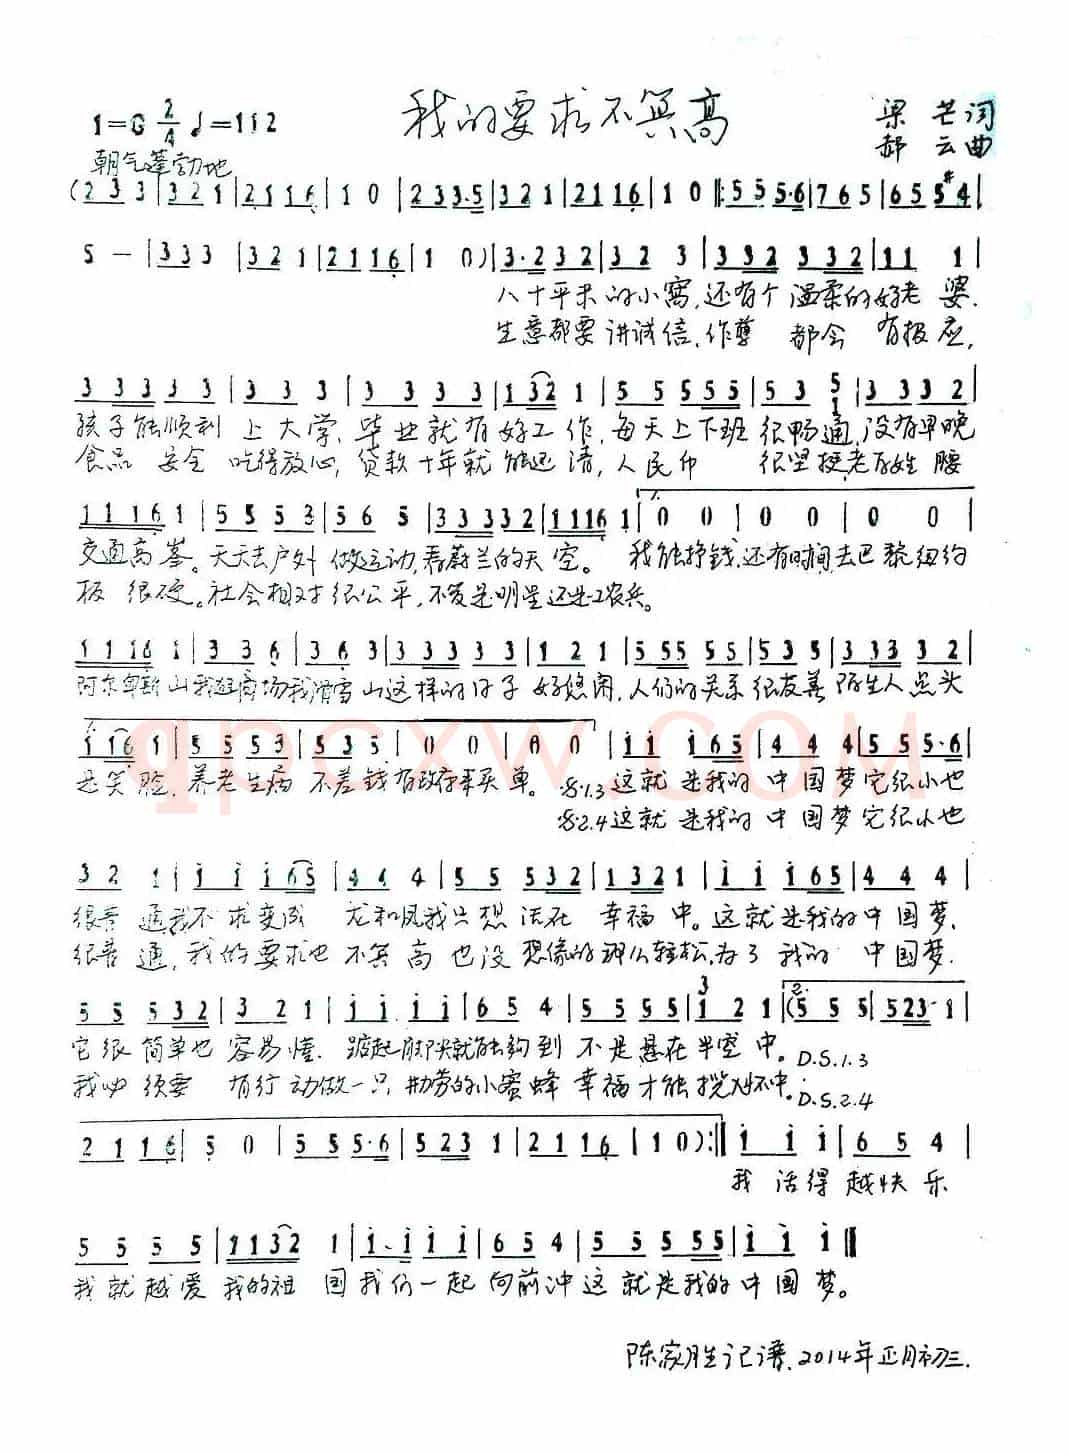 我的要求不算高
1=G 2/4 ♩=112
梁 芒词
郝 云曲
朝气蓬勃地
(2 3 3 | 3 2 1 | 2 1 1 6 | 1 0 | 2 3 3·5 | 3 2 1 | 2 1 1 6 | 1 0 ‖: 5 5 5·6 | 7 6 5 | 6 5 5 #4 |
5 — | 3 3 3 | 3 2 1 | 2 1 1 6 | 1 0) | 3·2 3 2 | 3 2 3 | 3 3 2 3 3 2 | 1 1 1 |
八十平米的小窝,还有个 温柔的好老 婆.
生意都要讲诚信,作孽 都会 有报应,
3 3 3 3 3 | 3 3 3 | 3 3 3 3 3 | 1 3 2 1 | 5 5 5 5 5 | 5 3 5 1 | 3 3 3 2 |
孩子能顺利 上大学、毕业就有好工作,每天上下班很畅通,没有早晚
食品 安全 吃得放心,贷款十年就能还清,人民币 很坚挺老百姓 腰
1 1 1 6 1 | 5 5 5 3 | 5 6 5 | 3 3 3 3 2 | 1 1 1 6 1 | 1. 0 0 | 0 0 | 0 0 |
交通高峰。天天去户外 做运动,看蔚兰的天空。 我能挣钱,还有时间去巴黎纽约
板 很硬。社会相对很公平,不管是明星还是工农兵。
1 1 1 6 1 | 3 3 6 | 3 6 3 | 3 3 3 3 3 | 1 2 1 | 5 5 5 5 5 | 5 3 5 | 3 3 3 3 2 |
阿尔卑斯山我逛商场我滑雪山这样的日子 好悠闲,人们的关系很友善 陌生人点头
1 1 6 1 | 5 5 5 3 | 5 3 5 | 0 0 | 0 0 | i i i 6 5 | 4 4 4 | 5 5 5·6 |
是笑脸,养老生病 不差钱有政府来买单。 𝄋1.3 这就是我的中国梦它很小也
𝄋2.4 这就是我的中国梦它很小也
3 2 1 | i i i 6 5 | 4 4 4 | 5 5 5 3 2 | 1 3 2 1 | i i i 6 5 | 4 4 4 |
很普 通我不求变成 龙和凤我只想活在 幸福中。这就是我的中国梦,
很普 通,我的要求也 不算高 也没 想像的那么轻松,为了 我的 中国梦.
5 5 5 3 2 | 3 2 1 | i i i i | 6 5 4 | 5 5 5 5 | 3 i 2 1 | 2. (5 5 5 | 5 2 3· 1 |
它很简单也 容易懂. 踮起脚尖就能够到 不是悬在半空中。D.S.1.3
我必 须要 有行 动做一只 勤劳的小蜜蜂 幸福才能揽入怀中。D.S.2.4
2 1 1 6 | 5 0 | 5 5 5·6 | 5 2 3 1 | 2 1 1 6 | 1 0) :‖ i i i | 6 5 4 |
我 活得越快乐
5 5 5 5 | 1 1 3 2 1 | i· i i i | 6 5 4 | 5 5 5 5 5 | i i i ‖
我就越爱我的祖 国我们一起向前冲这就是我的中国梦。
陈家胜记谱.2014年正月初三.
qpcxw.COM